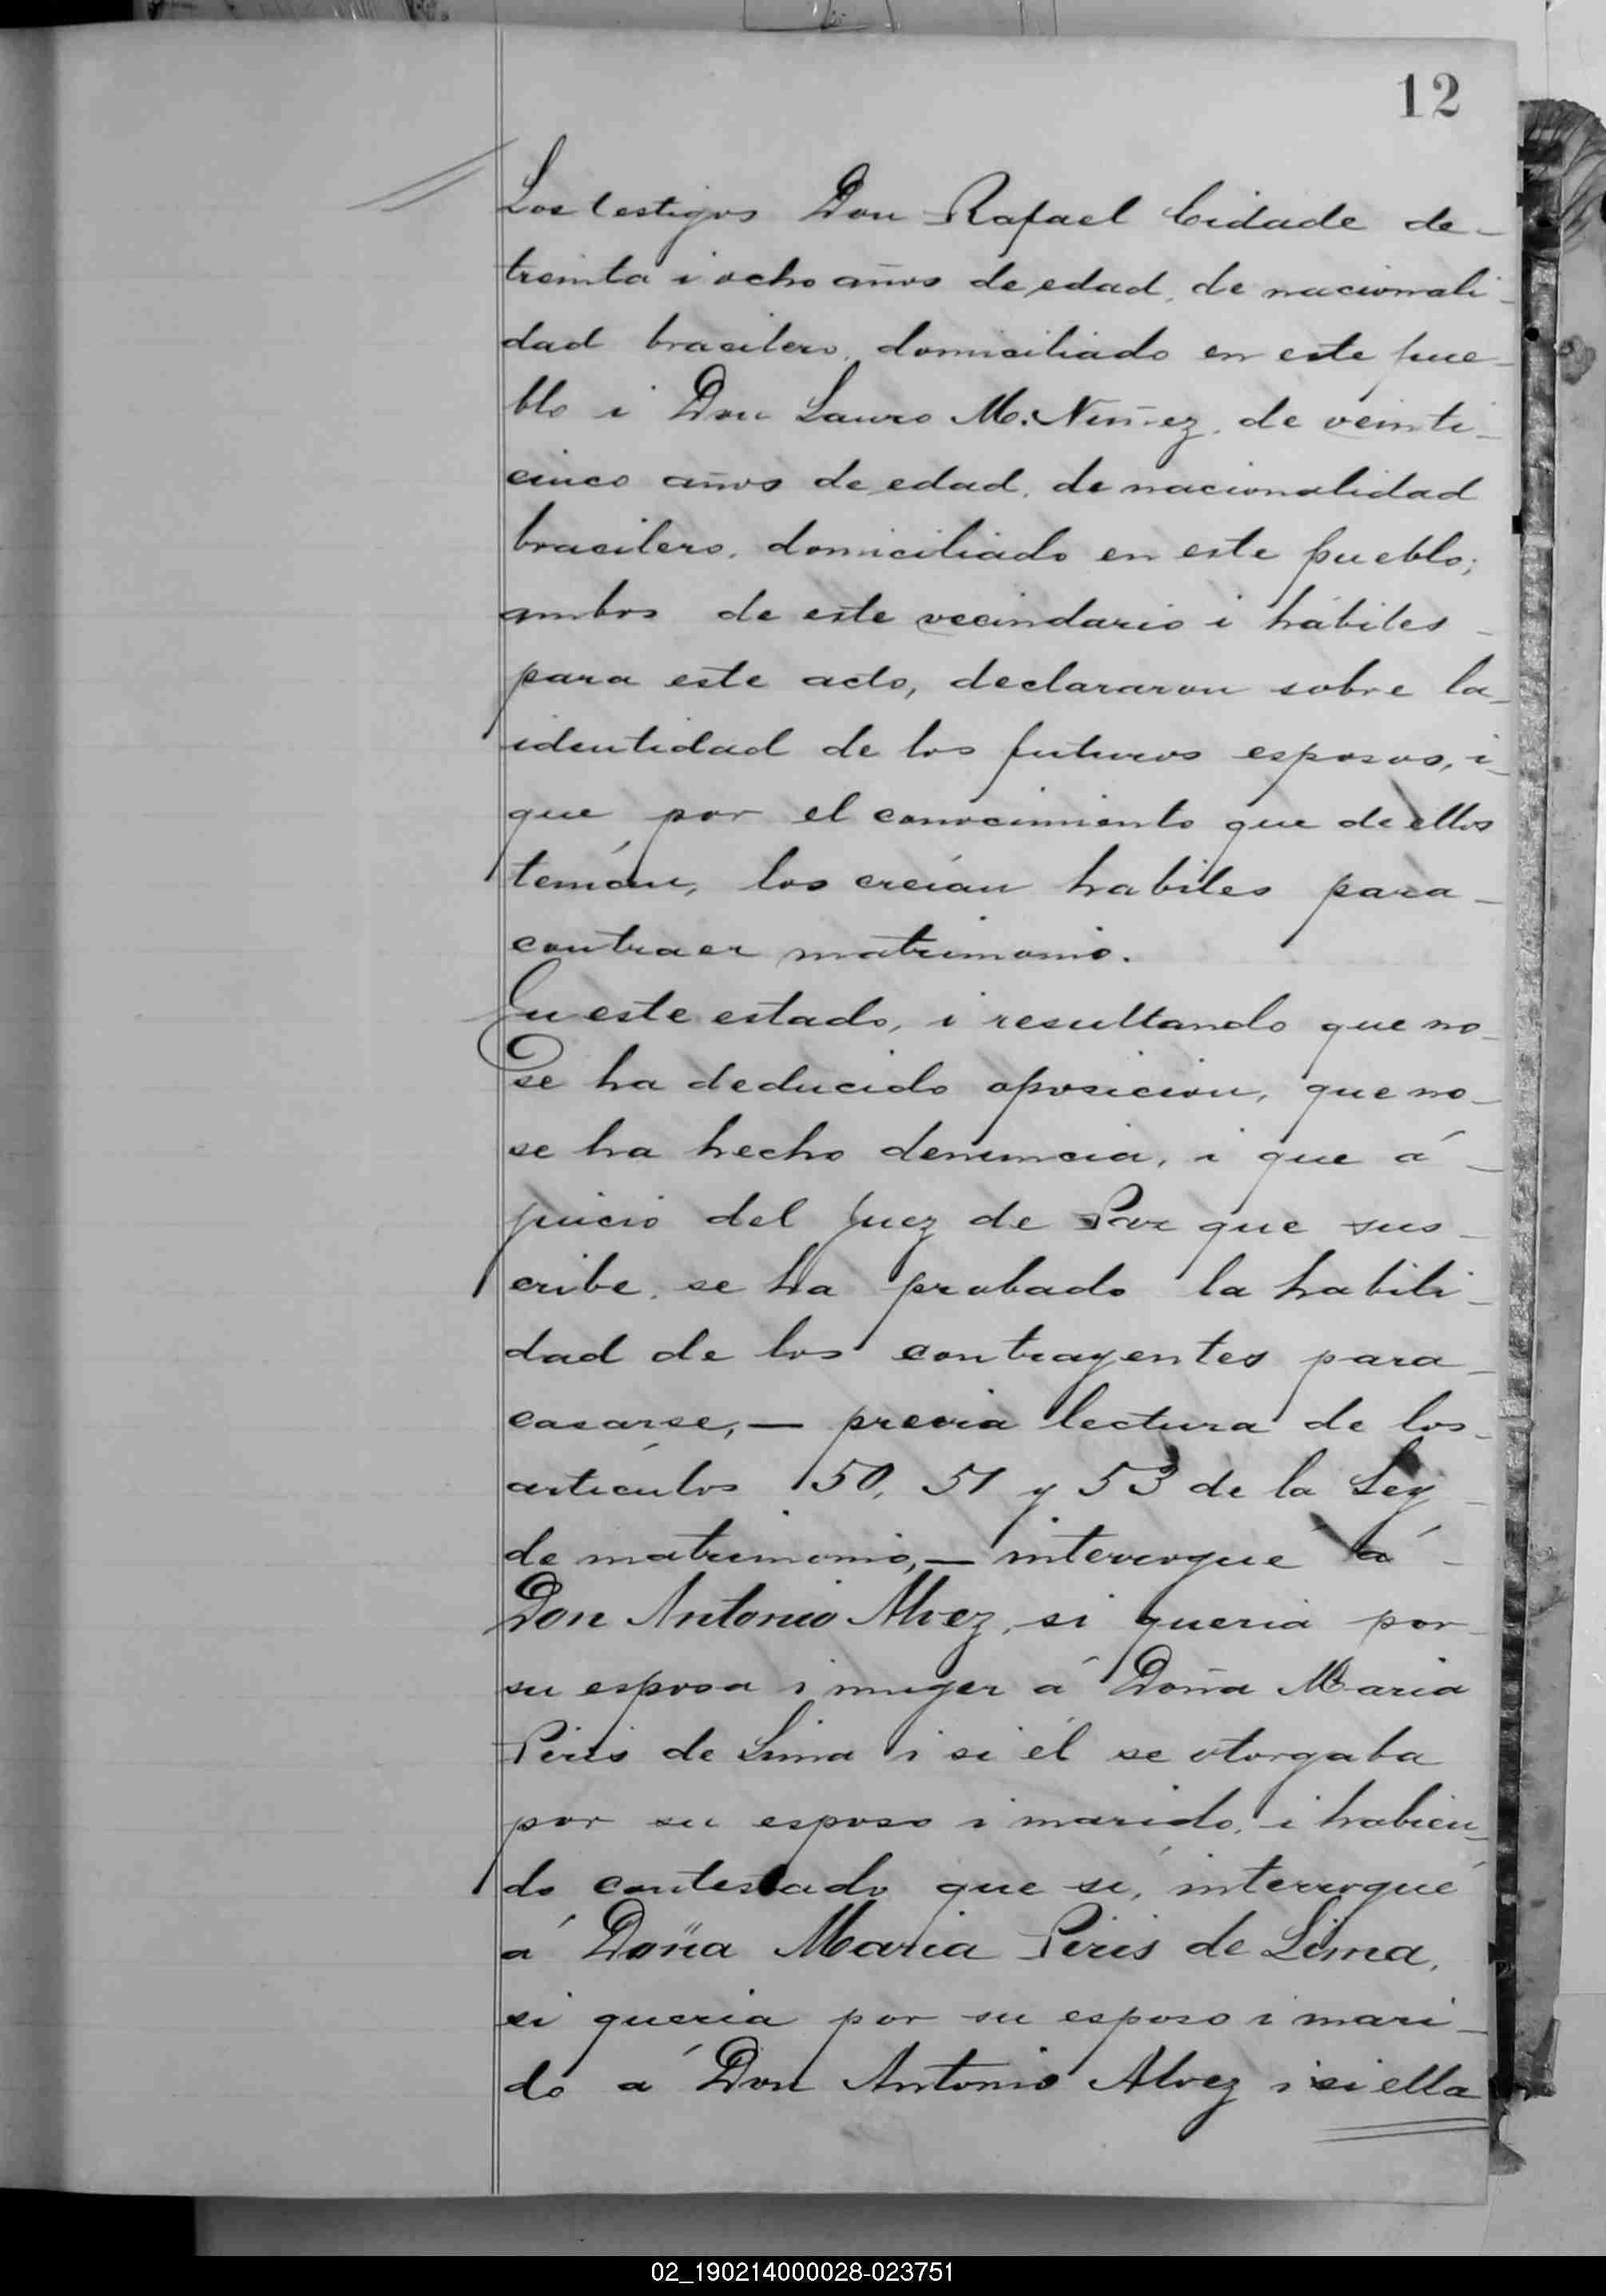 12
Los testigos Don Rafael Cidade de-
treinta i ocho años de edad, de nacionali-
dad bracilero, domiciliado en este pue-
blo i Don Lauro M. Nuñez, de veinti-
cinco años de edad, de nacionalidad
bracilero, domiciliado en este pueblo;
ambos de este vecindario i hábiles -
para este acto, declararon sobre la-
identidad de los futuros esposos, i-
que por el conocimiento que de ellos
tenían, los creían habiles para-
contraer matrimonio.
En este estado, i resultando que no-
se ha deducido oposicion, que no-
se ha hecho denuncia, i que á -
juicio del Juez de Paz que sus-
cribe, se ha probado la habili-
dad de los contrayentes para-
casarse, — previa lectura de los-
artículos 50, 51 y 53 de la Ley -
de matrimonio, — interrogue á -
Don Antonio Alvez, si queria por-
su esposa i muger á Doña Maria
Piris de Lima i si él se otorgaba
por su esposo i marido, i habien-
do contestado que sí, interrogué
á Doña Maria Piris de Lima,
si queria por su esposo i mari-
do á Don Antonio Alvez i si ella
02_190214000028-023751